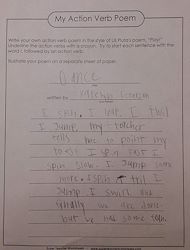 My Action Verb Poem
Write your own action verb poem in the style of Lili Pluta's poem, "Play!"
Underline the action verbs with a crayon. Try to start each sentence with the
word I, followed by an action verb.
Illustrate your poem on a separate sheet of paper.
Dance
written by
I spin, I leap, I twil
I Jump, my teacher
tells me to point my
toes! I spin fast I
spin slow. I Jump some
more. I spin I twil I
Jump I swirl and
finally we are done.
but we had some fun.